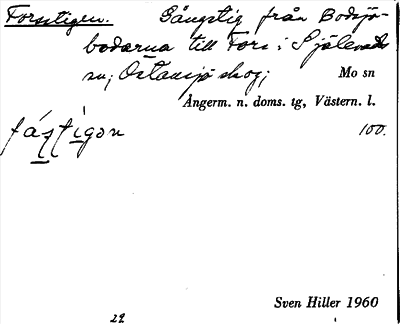 Forsstigen. Gångstig från Bodsjö-
bodarna till Fors i Själevads
sn; Östansjö skog;
Mo sn
Ångerm. n. doms. tg, Västern. l.
100.
Sven Hiller 1960
22